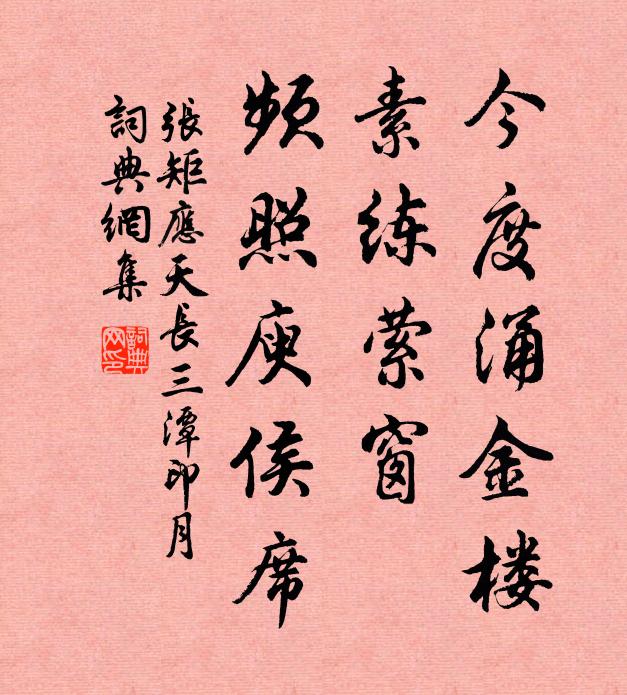 今度涌金楼
素练萦窗
频照庾侯席
張矩應天長三潭印月
詞典網集
詞典网印